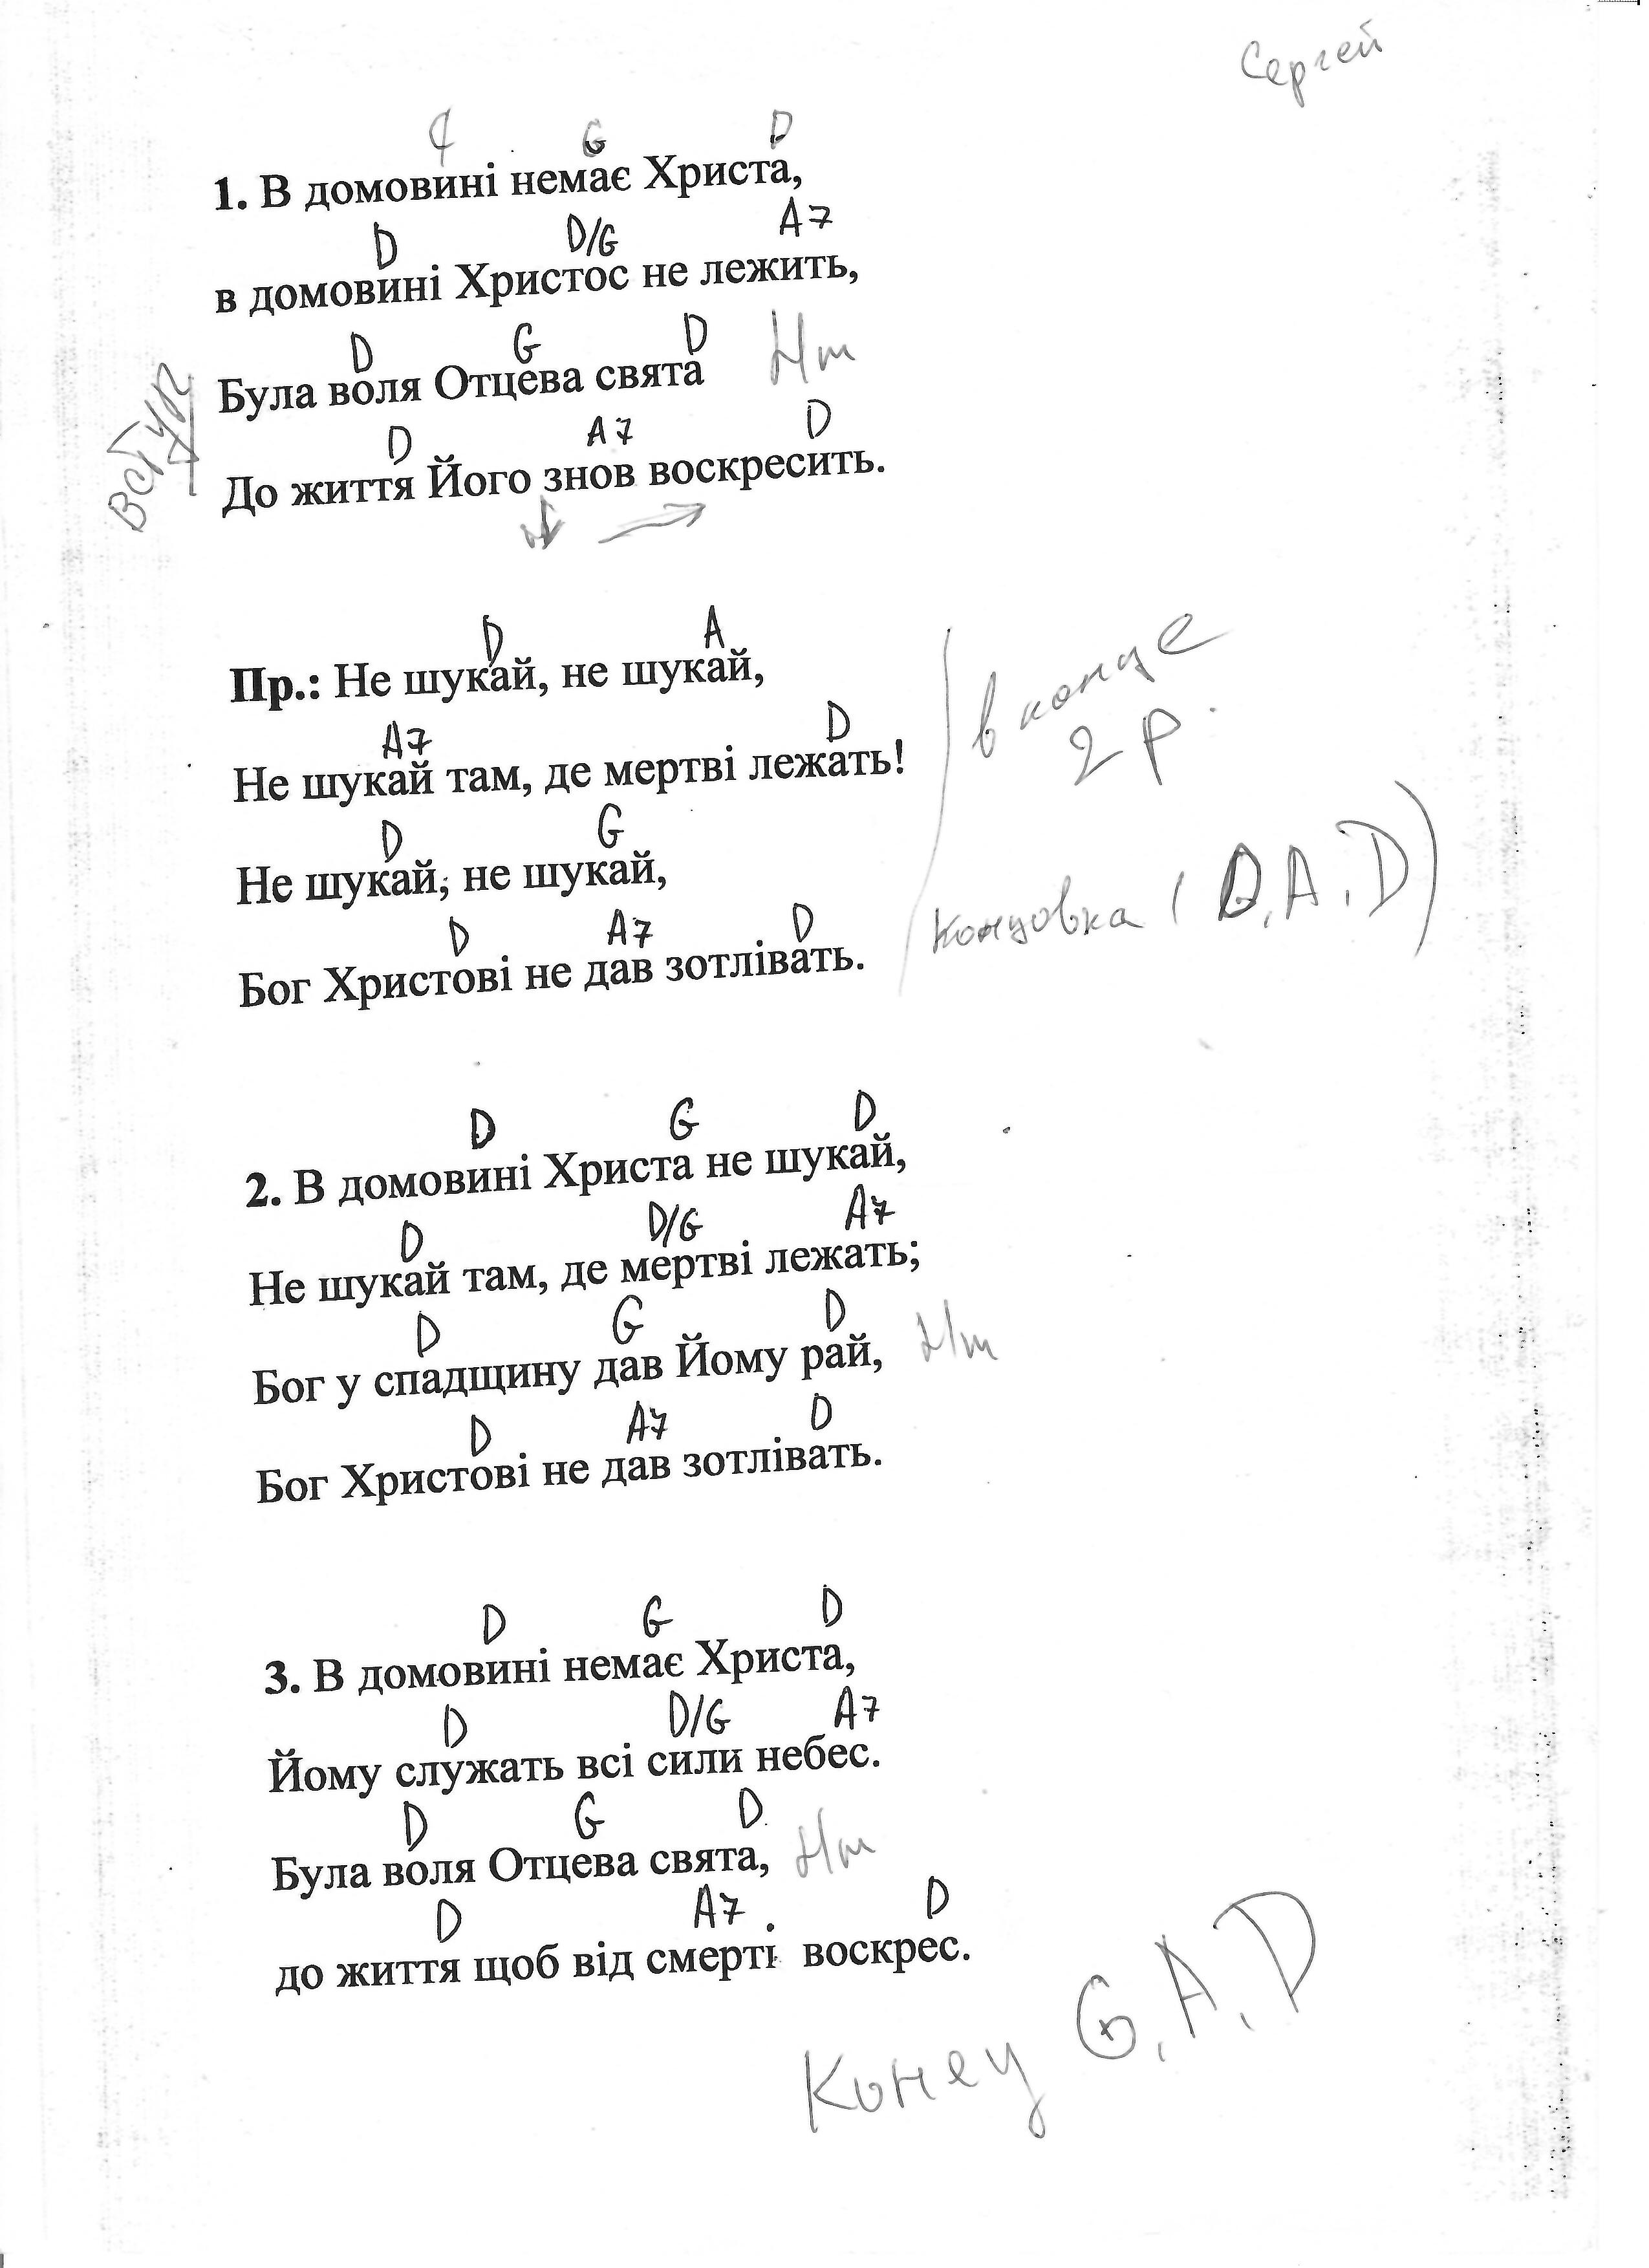 Сергей
G D
1. В домовині немає Христа,
D D/G A7
в домовині Христос не лежить,
D G D Hm
Була воля Отцева свята
D A7 D
До життя Його знов воскресить.
вступ
D A
Пр.: Не шукай, не шукай,
A7 D
Не шукай там, де мертві лежать!
в конце
2 р.
D G
Не шукай, не шукай,
концовка ( G, A, D)
D A7 D
Бог Христові не дав зотлівать.
D G D
2. В домовині Христа не шукай,
D D/G A7
Не шукай там, де мертві лежать;
D G D Hm
Бог у спадщину дав Йому рай,
D A7 D
Бог Христові не дав зотлівать.
D G D
3. В домовині немає Христа,
D D/G A7
Йому служать всі сили небес.
D G D Hm
Була воля Отцева свята,
D A7 D
до життя щоб від смерті воскрес.
Конец G, A, D